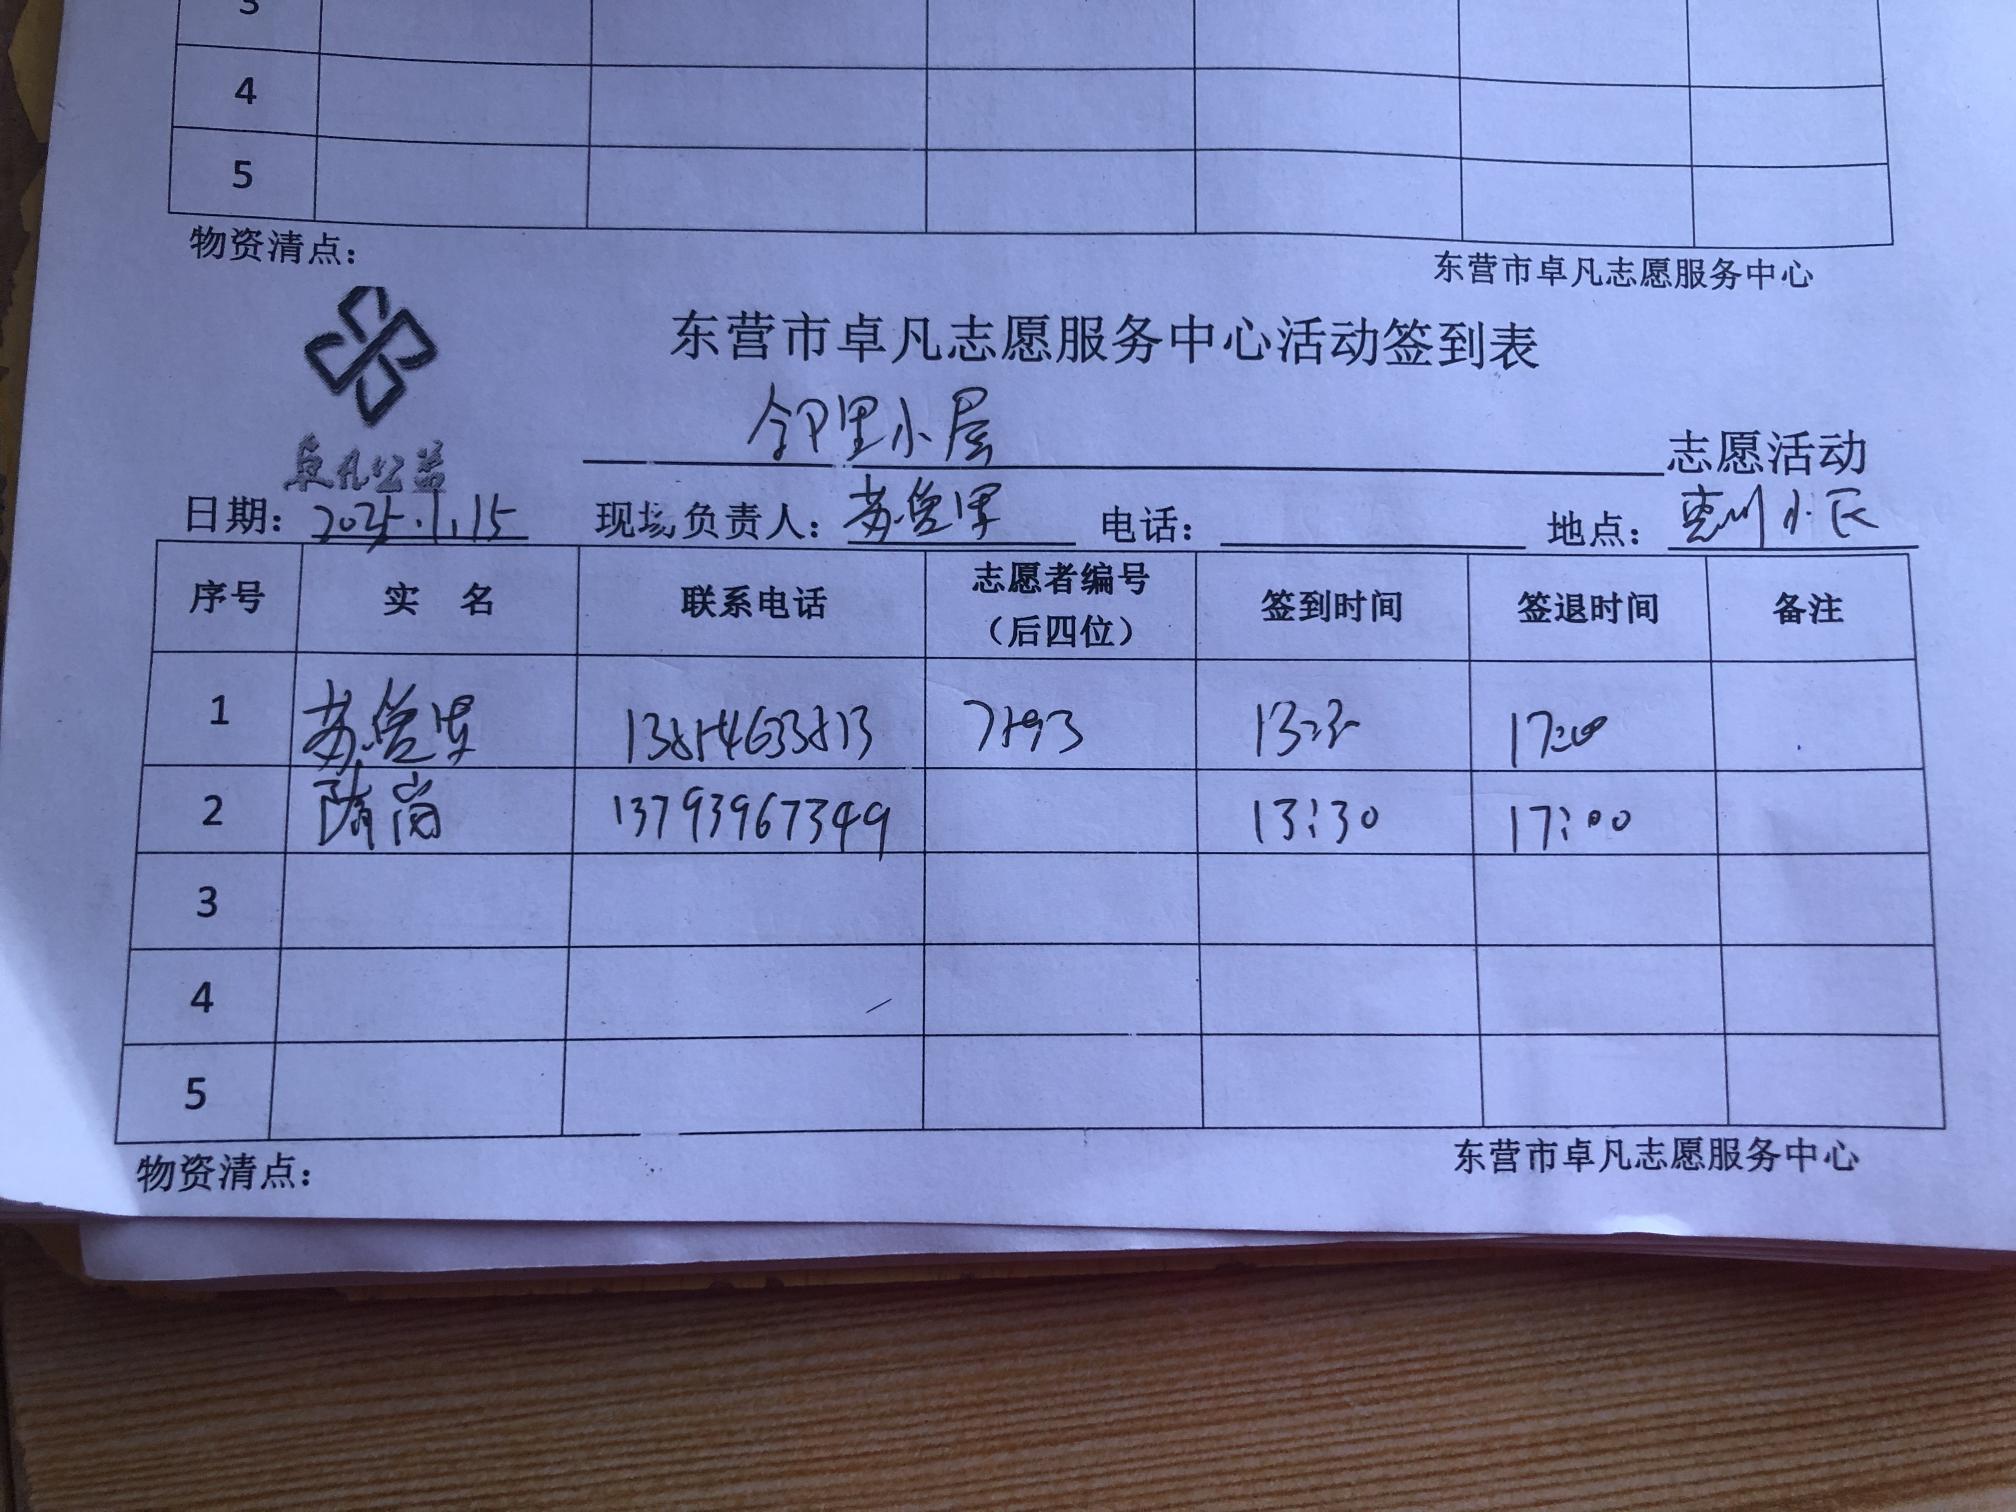 3
4
5
物资清点：
东营市卓凡志愿服务中心
东营市卓凡志愿服务中心活动签到表
卓凡公益
邻里小屋 志愿活动
日期：2025.1.15 现场负责人：苏 电话： 地点：惠州小区
序号 实 名 联系电话 志愿者编号（后四位） 签到时间 签退时间 备注
1 苏 13854633813 7593 13:30 17:00
2 隋岗 13793967349 13:30 17:00
3
4
5
物资清点：
东营市卓凡志愿服务中心